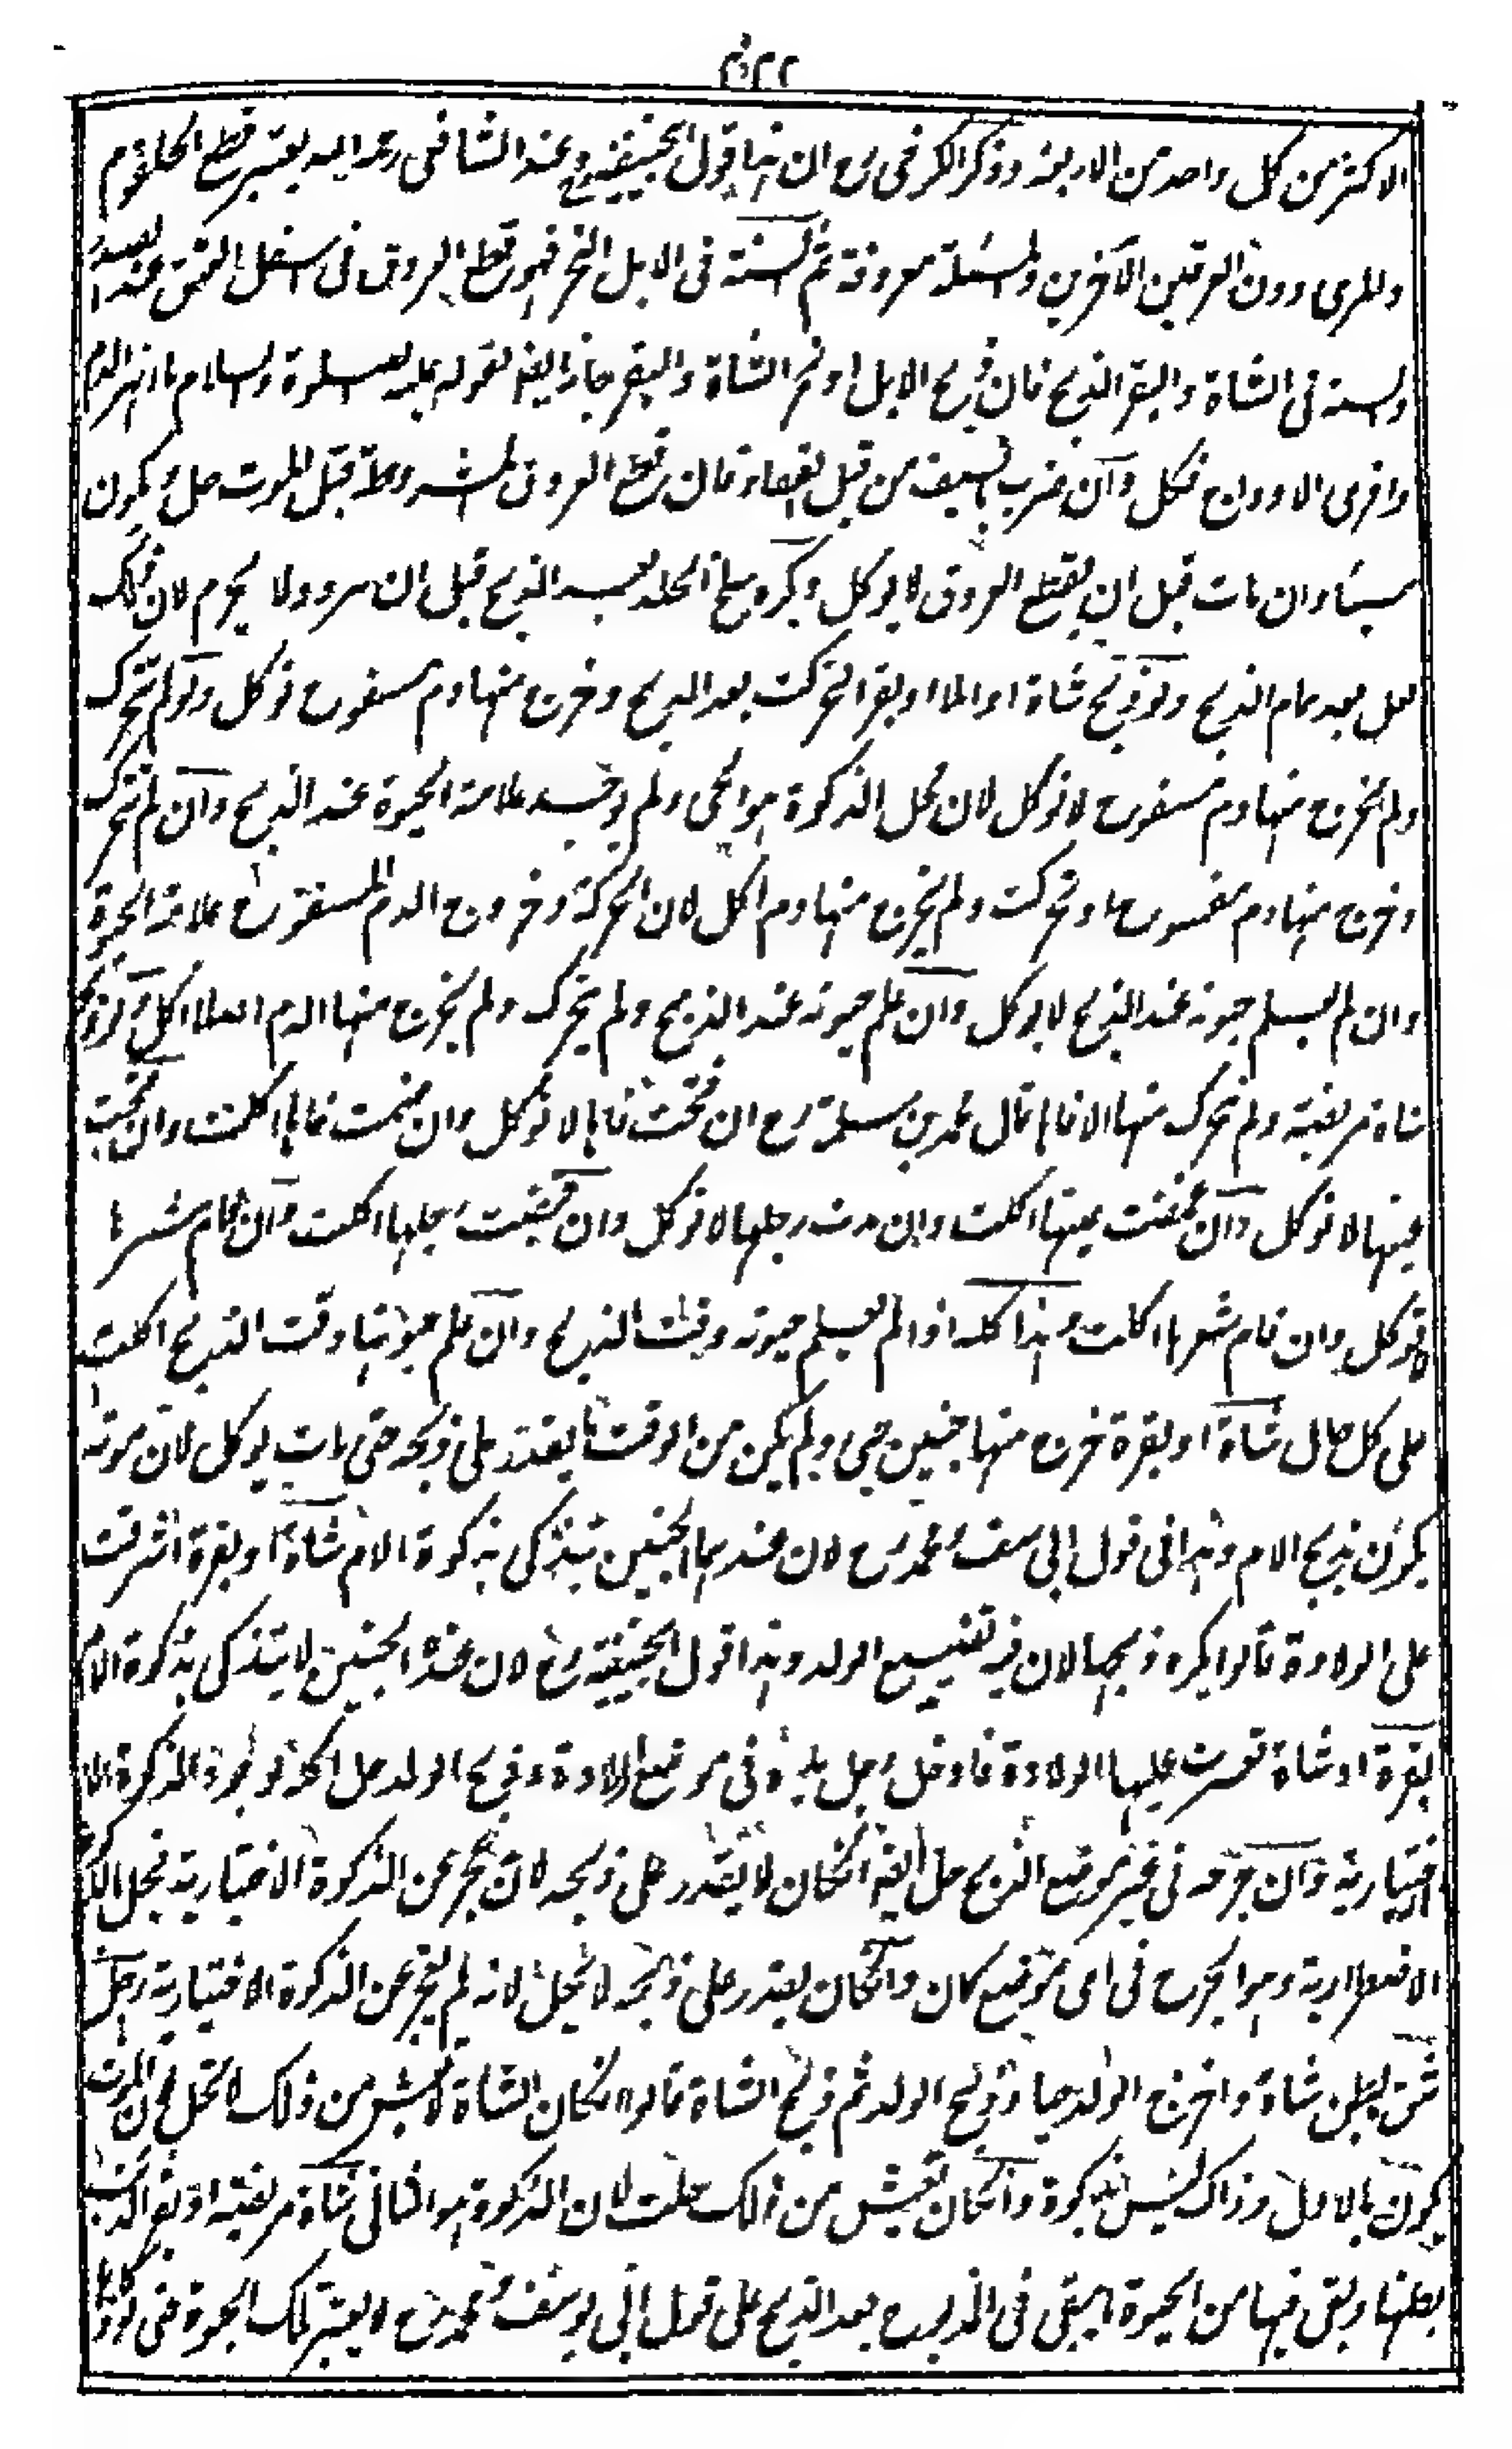 الاكثر من كل واحد من الاربعة وذكر الكرخى رح ان هذا قول ابيحنيفة رح وعند الشافعى رحمه الله يعتبر قطع الحلقوم
والمرى دون العرقين الآخرين والمسئلة معروفة ثم السنة فى الابل النحر فهو قطع العروق فى اسفل العنق عند الصدر
والسنة فى الشاة والبقر الذبح فان ذبح الابل او نحر الشاة والبقر جاز ايضا لقوله عليه الصلوة والسلام ما انهر الدم
وافرى الاوداج فكل وان ضرب بالسيف من قبل القفا فان قطع العروق المشروطة قبل الموت حل ويكون
مسيئا وان مات قبل ان يقطع العروق لا يوكل ويكره سلخ الجلد بعد الذبح قبل ان يبرد ولا يحرم لان ذلك
بعد تمام الذبح ولو ذبح شاة او بقرا تحركت بعد الذبح وخرج منها دم مسفوح توكل ولو لم تتحرك
ولم يخرج منها دم مسفوح لا توكل لان محل الذكوة هو الحى ولم يوجد علامة الحيوة عند الذبح وان لم تتحرك
وخرج منها دم مسفوح او تحركت ولم يخرج منها دم اكل لان الحركة وخروج الدم المسفوح علامة الحيوة
وان لم يعلم حيوته عند الذبح لا يوكل وان علم حيوته عند الذبح ولم يتحرك ولم يخرج منها الدم اصلا اكل ولو ذبح
شاة مريضة ولم تتحرك منها الا فاها قال محمد بن سلمة رح ان فتحت فاها لا توكل وان ضمت فاها اكلت وان فتحت
عينها لا توكل وان غمضت عينها اكلت وان مدت رجلها لا توكل وان قبضت رجلها اكلت وان نام شعرها
لا توكل وان قام شعرها اكلت وهذا كله اذا لم يعلم حيوته وقت الذبح وان علم حيوتها وقت الذبح اكلت
على كل حال شاة او بقرة خرج منها جنين حى ولم يكن من الوقت ما يقدر على ذبحه حتى مات يوكل لان موته
يكون بذبح الام وهذا فى قول ابى يوسف ومحمد رح لان عندهما الجنين يتذكى بذكوة الام شاة او بقرة اشرفت
على الولادة قالوا يكره ذبحها لان فيه تضييع الولد وهذا قول ابيحنيفة رح لان عنده الجنين لا يتذكى بذكوة الام
بقرة او شاة تعسرت عليها الولادة فادخل رجل يده فى موضع الولادة وذبح الولد حل اكله لوجود الذكوة الا
ختيارية وان جرحه فى غير موضع الذبح حل ايضا انكان لا يقدر على ذبحه لانه عجز عن الذكوة الاختيارية فحل الذكوة
الاضطرارية وهو الجرح فى اى موضع كان وانكان يقدر على ذبحه لا يحل لانه لم يعجز عن الذكوة الاختيارية رجل
شق بطن شاة واخرج الولد حيا وذبح الولد ثم ذبح الشاة قالوا انكان الشاة لا تعيش من ذلك لا تحل لان الموت
يكون بالاول وذاك ليس بذكوة وانكان تعيش من ذلك حلت لان الذكوة هو الثانى شاة مريضة او بقر الذئب
بطنها وبقى فيها من الحيوة ما يبقى فى المذبوح بعد الذبح على قول ابى يوسف ومحمد رح لا يعتبر تلك الحيوة حتى